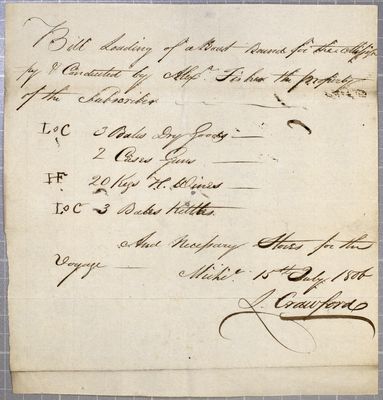 Bill Loading of a Boat Bound for the Missisip
py & Conducted by Alexr. Fisher the property
of the Subscriber
LoC 3 Bales Dry Goods
2 Cases Guns
HF 20 Kegs H. Wines
LoC 3 Bales Kettles
And Necessary Stores for the
Voyage
Michc. 15th July 1806
J. Crawford